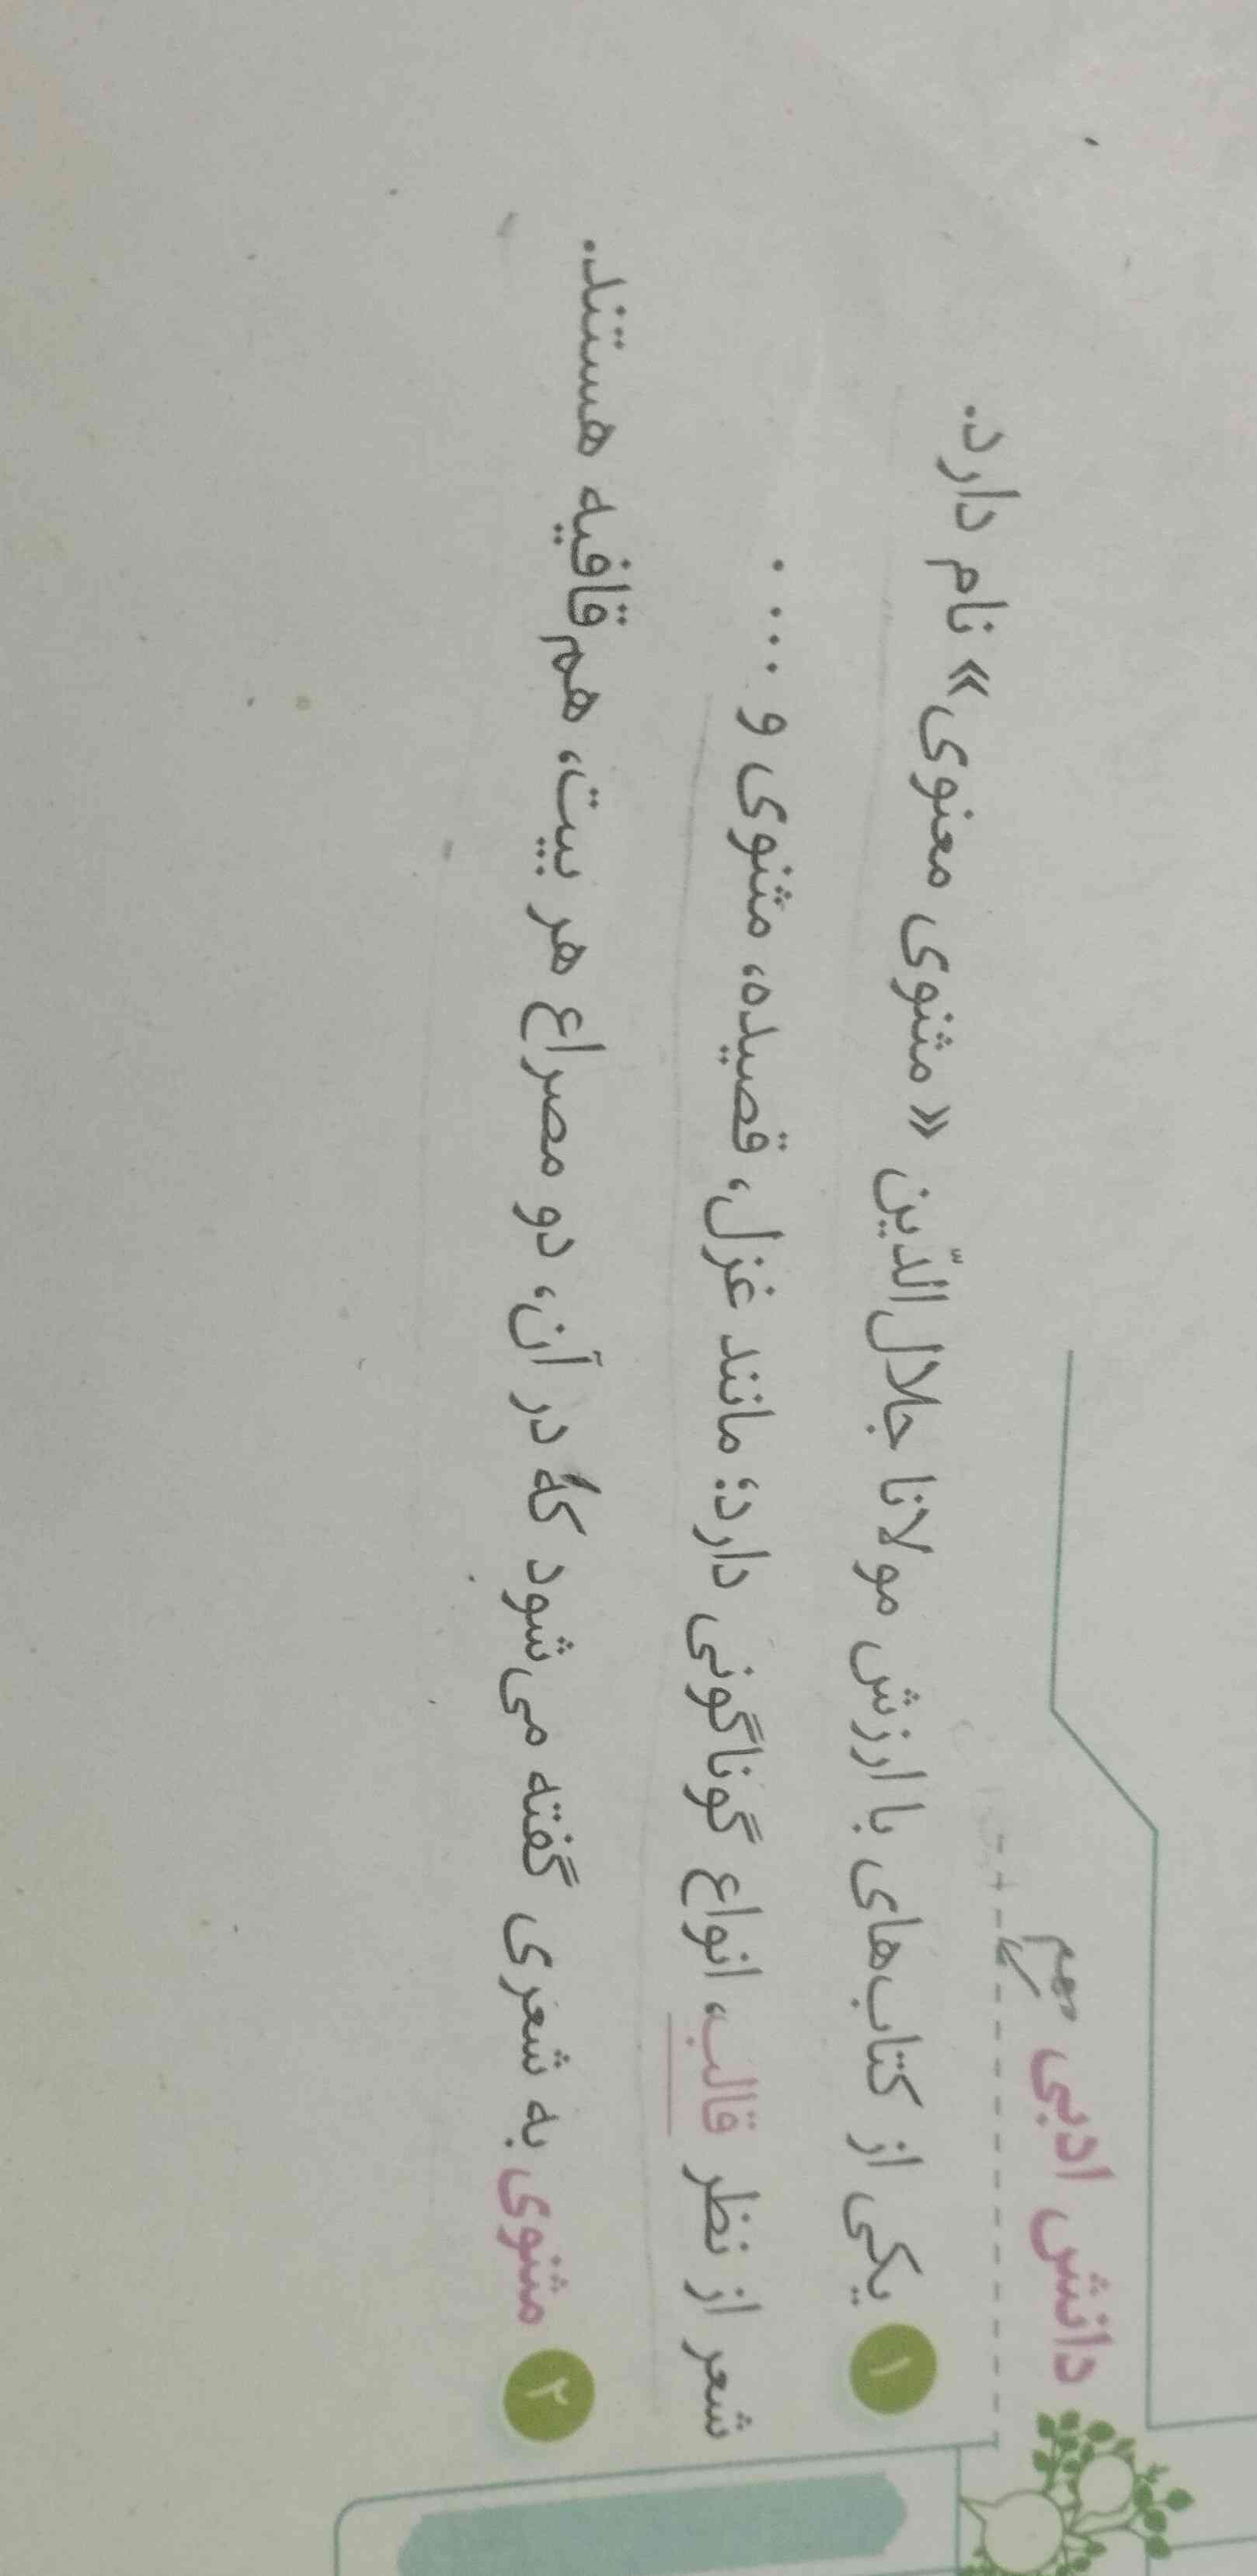 دانش ادبی مهم
۱ یکی از کتاب‌های با ارزش مولانا جلال‌الدّین « مثنوی معنوی» نام دارد.
شعر از نظر قالب، انواع گوناگونی دارد؛ مانند غزل، قصیده، مثنوی و ... .
۲ مثنوی به شعری گفته می‌شود که در آن، دو مصراع هر بیت، هم‌قافیه هستند.